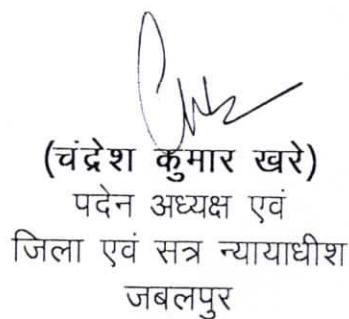 (चंद्रेश कुमार खरे)
पदेन अध्यक्ष एवं
जिला एवं सत्र न्यायाधीश
जबलपुर